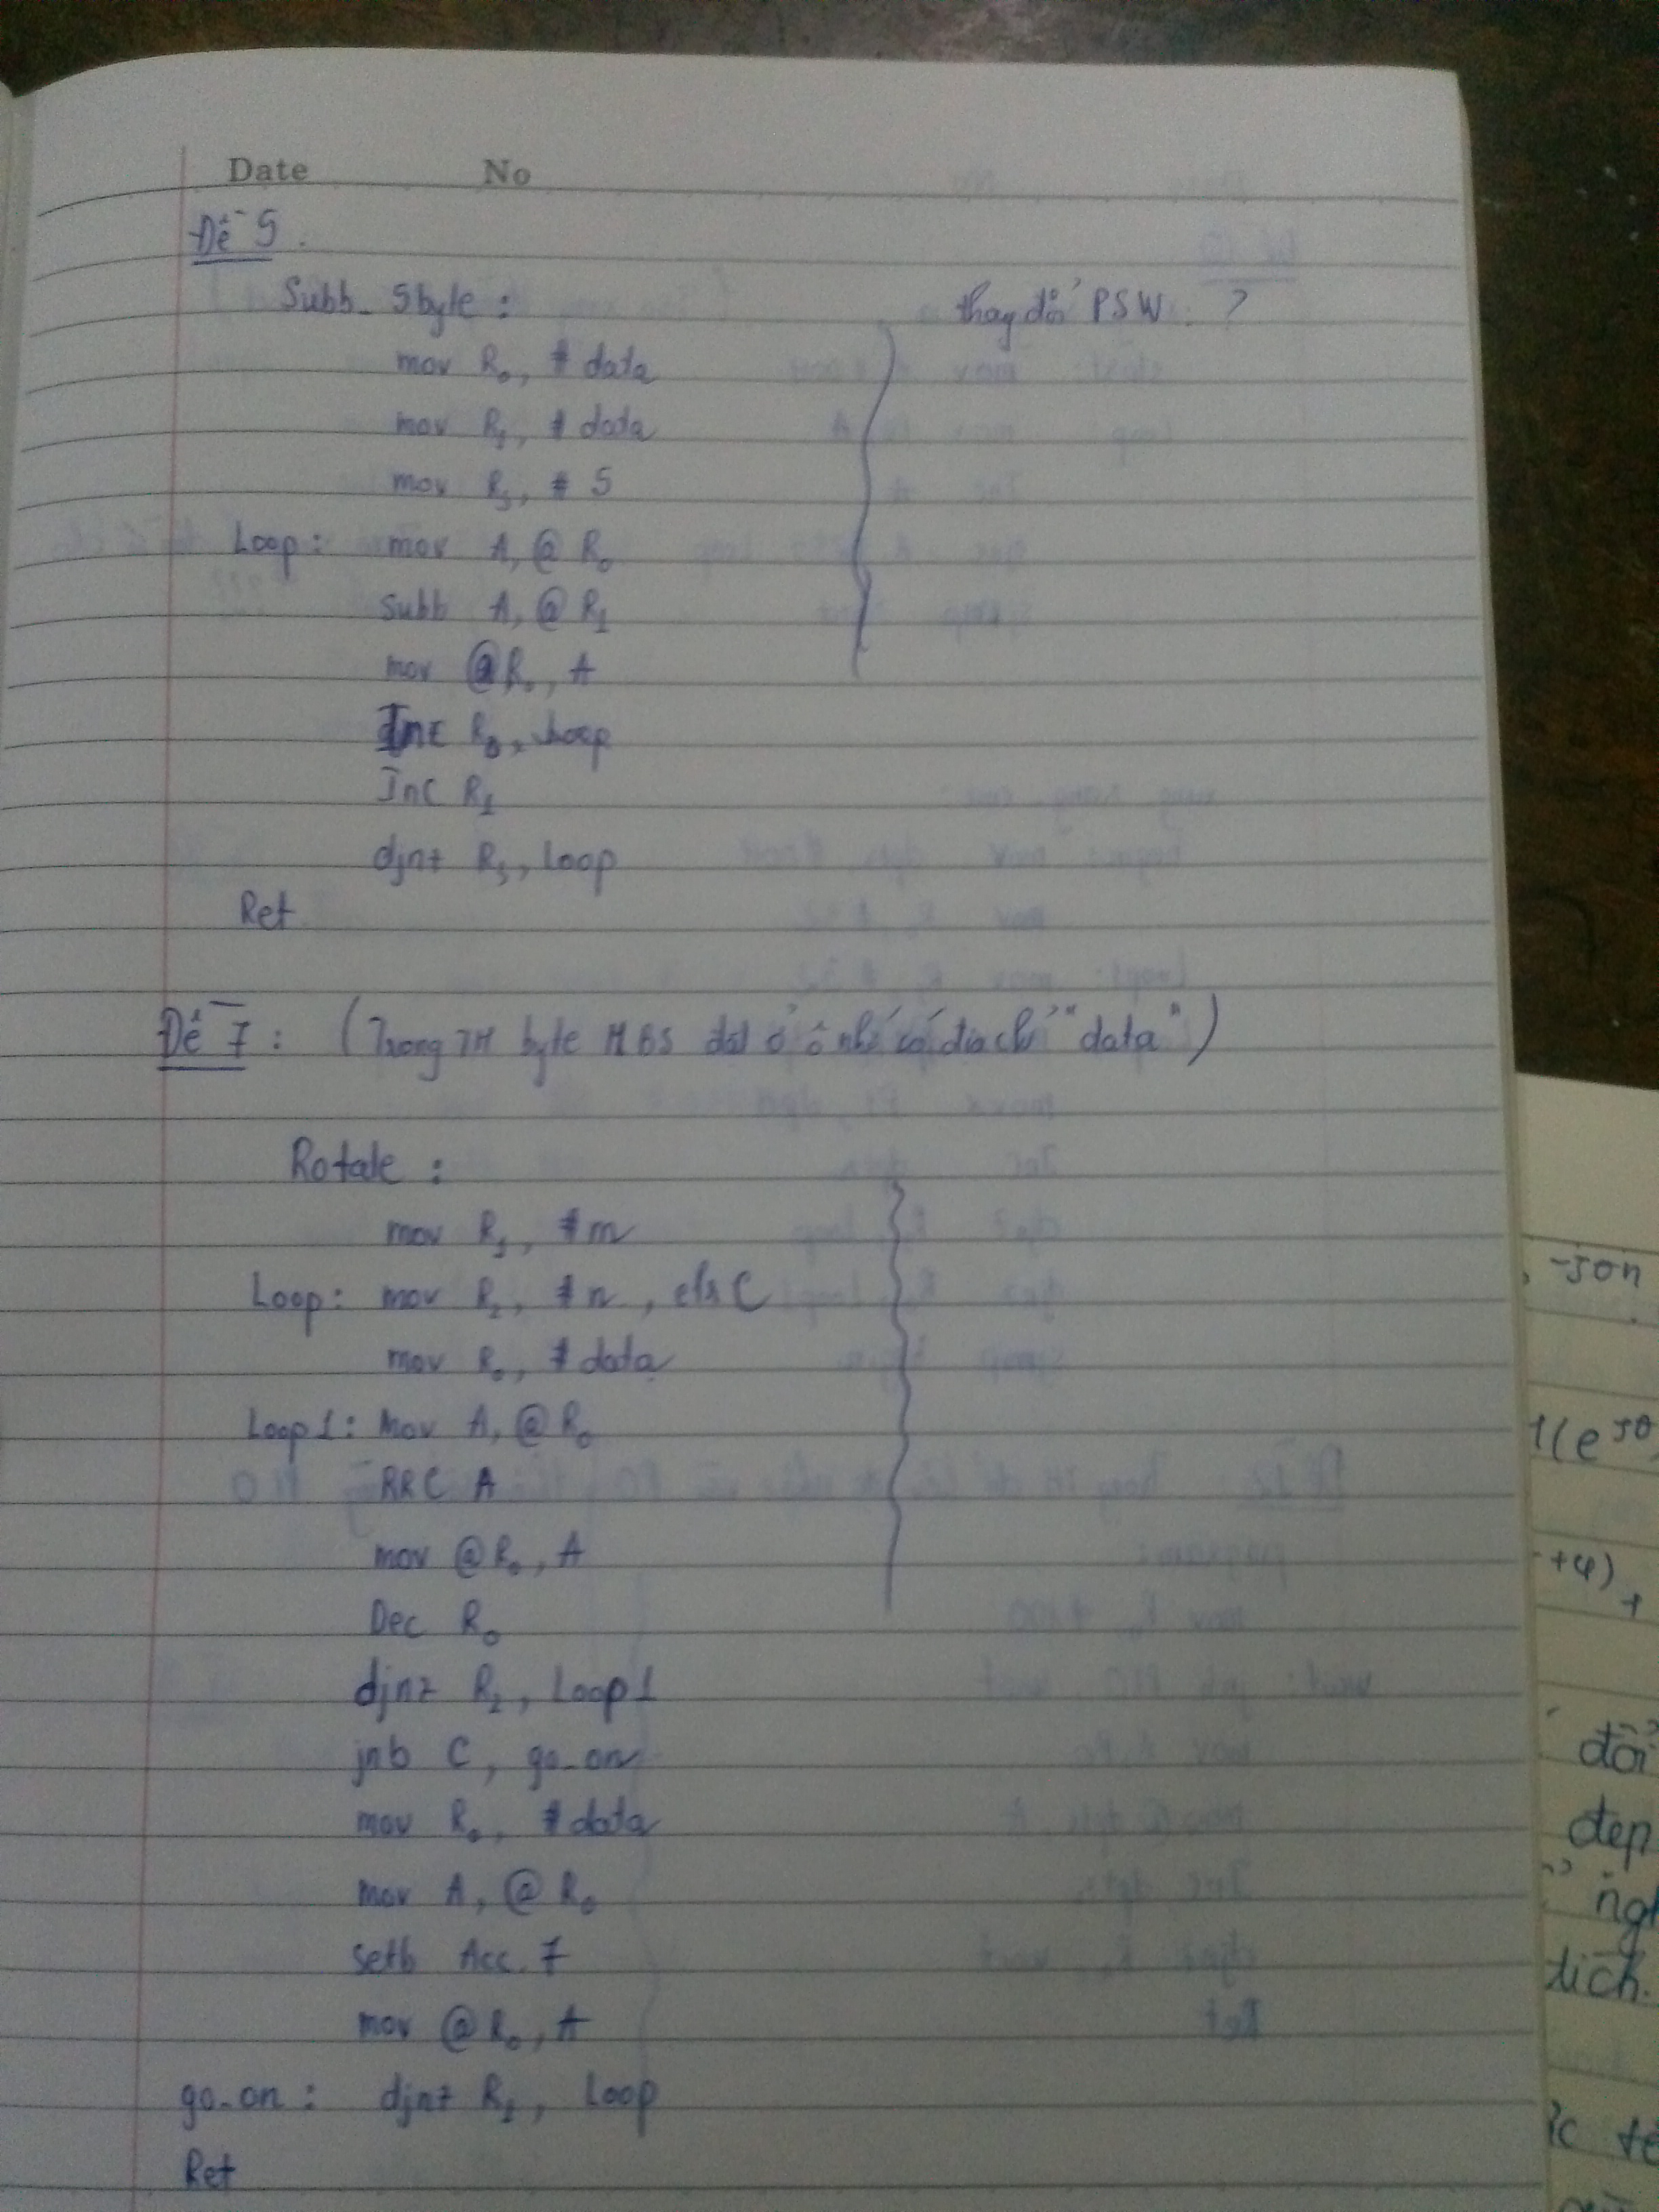 Date No
Đề 5.
Subb_5byte : thay đổi PSW ?
mov R0, # data
mov R1, # data
mov R3, # 5
Loop: mov A, @ R0
subb A, @ R1
mov @R0, A
Inc R0, Loop
Inc R1
djnz R3, Loop
Ret
Đề 7 : (Trong TH byte MBS đặt ở ô nhớ có địa chỉ "data")
Rotate :
mov R1, #m
Loop: mov R2, #n, clr C
mov R0, #data
Loop1: Mov A, @ R0
RRC A
mov @ R0, A
Dec R0
djnz R2, Loop1
jnb C, go_on
mov R0, #data
mov A, @ R0
setb Acc.7
mov @ R0, A
go_on : djnz R1, Loop
Ret
đổi
đẹp